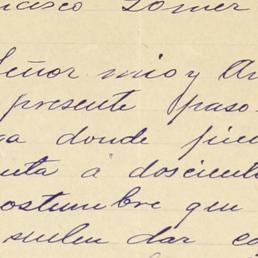 cisco Gomer
Señor mio y A
presente paso
ga donde pue
nta á doscient
costumbre que
suelen dar co